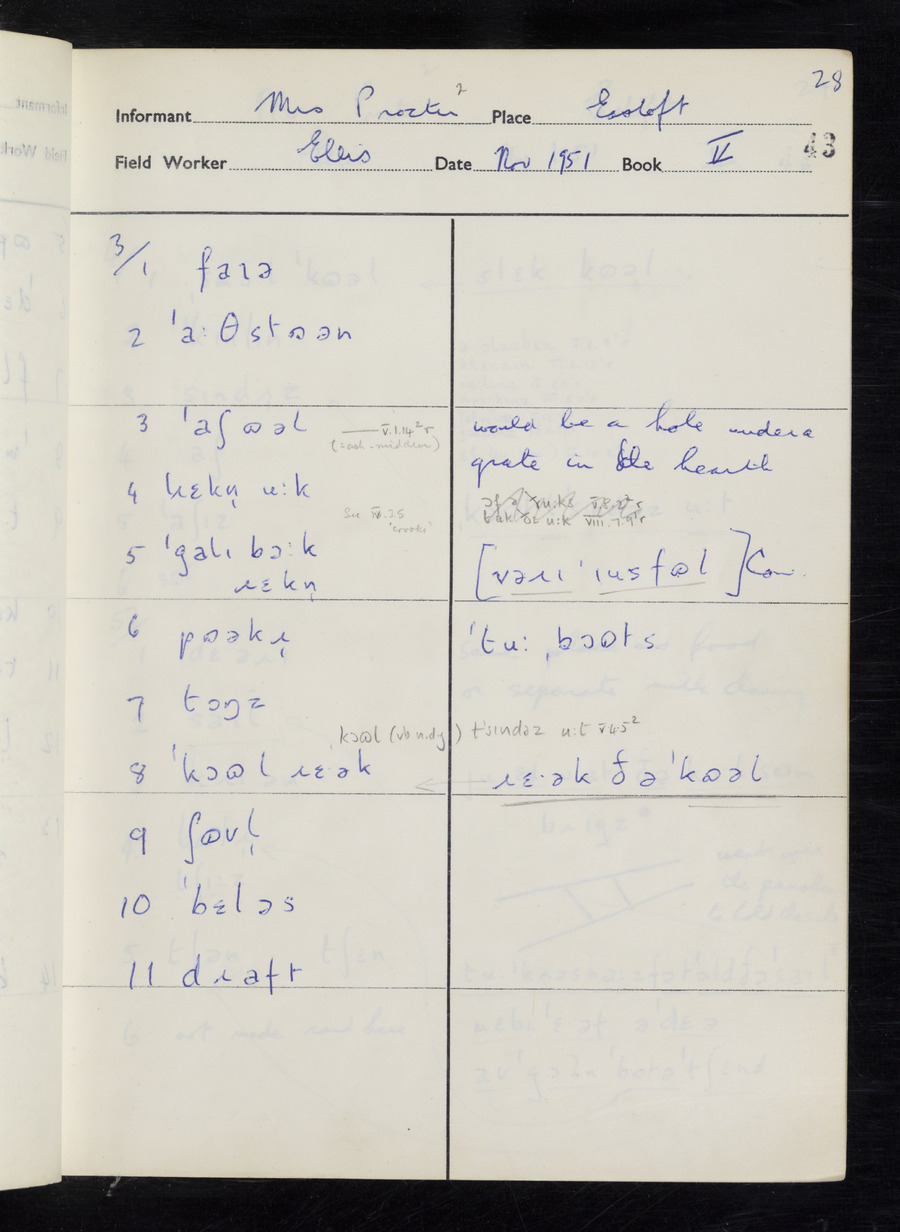 28
Informant Mrs Procter ² Place Easloft
43
Field Worker Ellis Date Nov 1951 Book V
3/1 faɪə
2 ˈa:θstɷən
3 ˈaʃɷəl
V.1.14²r
(=ash-midden)
would be a hole under a
grate in the hearth
4 ɹɛkn̩ u:k
See IV.3.5
'crooks'
5 ˈgalɪ bɔ:k
ɹɛkn̩
[vəɹɪ ˈɪusfɷl] Com.
6 pɷəkɪ̣
ˈtu: bɔɷts
7 tɔŋz
kɔɷl (vb n.dg) tˈsɪndəz u:t V.4.5²
8 ˈkɔɷl ɹɛək
ɹɛ·ək ðəˈkɷəl
9 ʃɷvl̩
10 ˈbɛləs
11 dɹaft